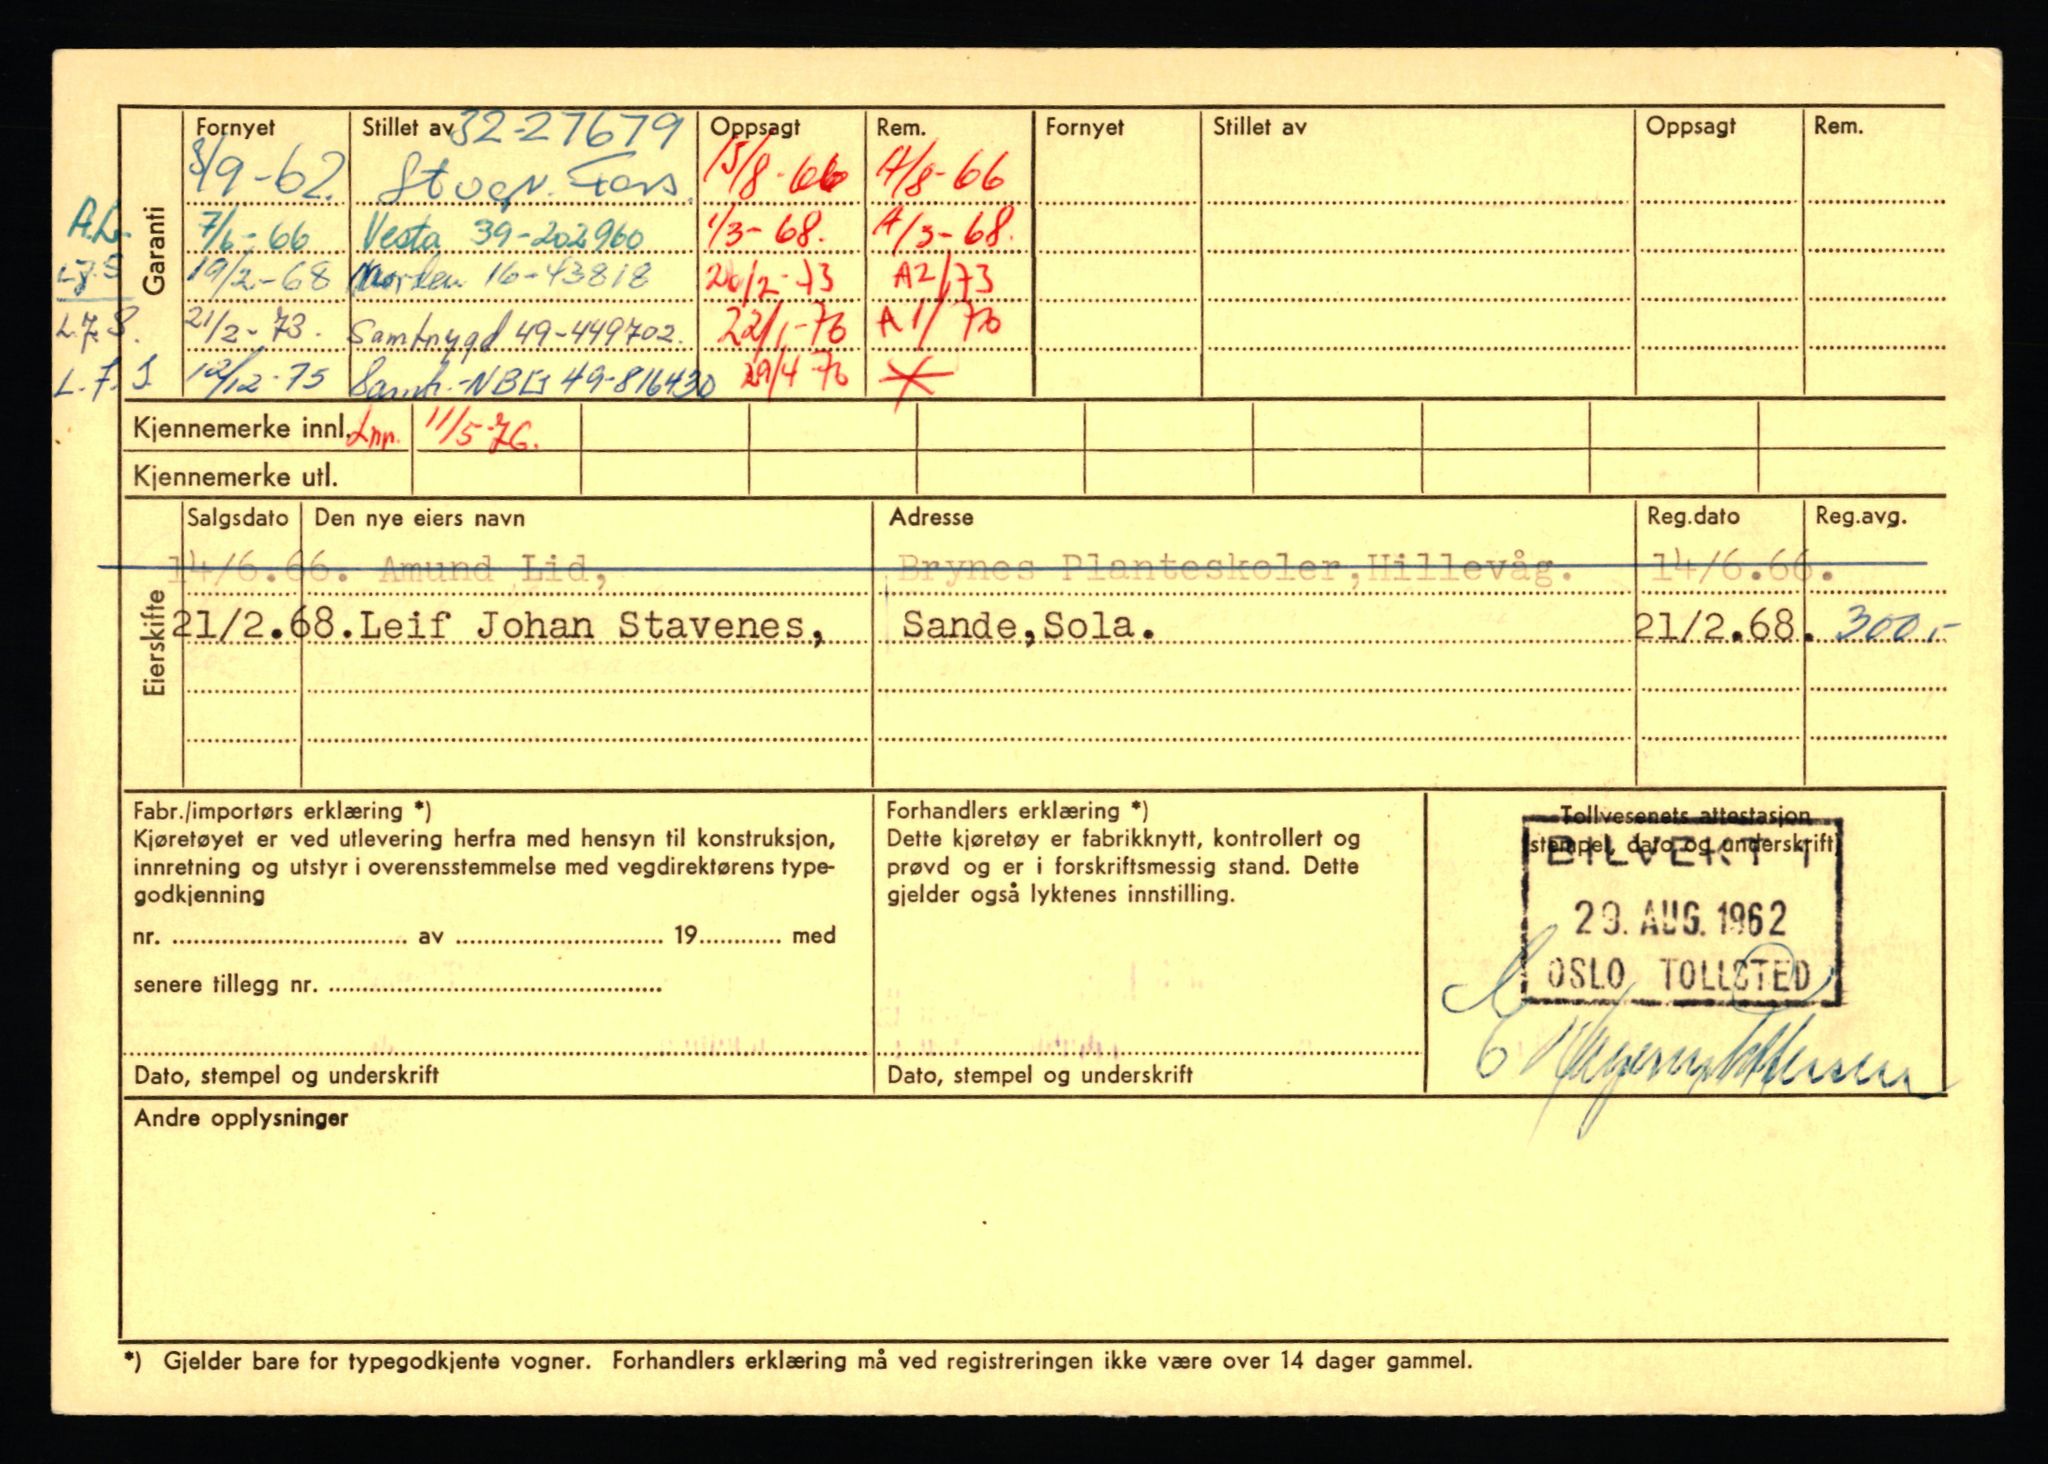 Garanti
Fornyet Stillet av 32-27679 Oppsagt Rem. Fornyet Stillet av Oppsagt Rem.
3/9-62. 15/8-66 A/8-66
A.L. 7/6-66 Vesta 39-202960 1/3-68. A/3-68.
L.J.S 19/2-68 Norden 16-43818 20/2-73 A2/73
L.J.S. 21/2-73. Samtrygd 49-449702. 22/1-76 A1/76
L.J.S. 12/12-75 49-816430 29/4-76
Kjennemerke innl. 11/5-76.
Kjennemerke utl.
Eierskifte
Salgsdato Den nye eiers navn Adresse Reg.dato Reg.avg.
14/6.66. Amund Lid, Brynes Planteskoler,Hillevåg. 14/6.66.
21/2.68. Leif Johan Stavenes, Sande,Sola. 21/2.68. 300,-
Fabr./importørs erklæring *)
Kjøretøyet er ved utlevering herfra med hensyn til konstruksjon,
innretning og utstyr i overensstemmelse med vegdirektørens type-
godkjenning
nr. av 19 med
senere tillegg nr.
Dato, stempel og underskrift
Forhandlers erklæring *)
Dette kjøretøy er fabrikknytt, kontrollert og
prøvd og er i forskriftsmessig stand. Dette
gjelder også lyktenes innstilling.
Dato, stempel og underskrift
Tollvesenets attestasjon
stempel, dato og underskrift
29. AUG. 1962
OSLO TOLLSTED
Andre opplysninger
*) Gjelder bare for typegodkjente vogner. Forhandlers erklæring må ved registreringen ikke være over 14 dager gammel.